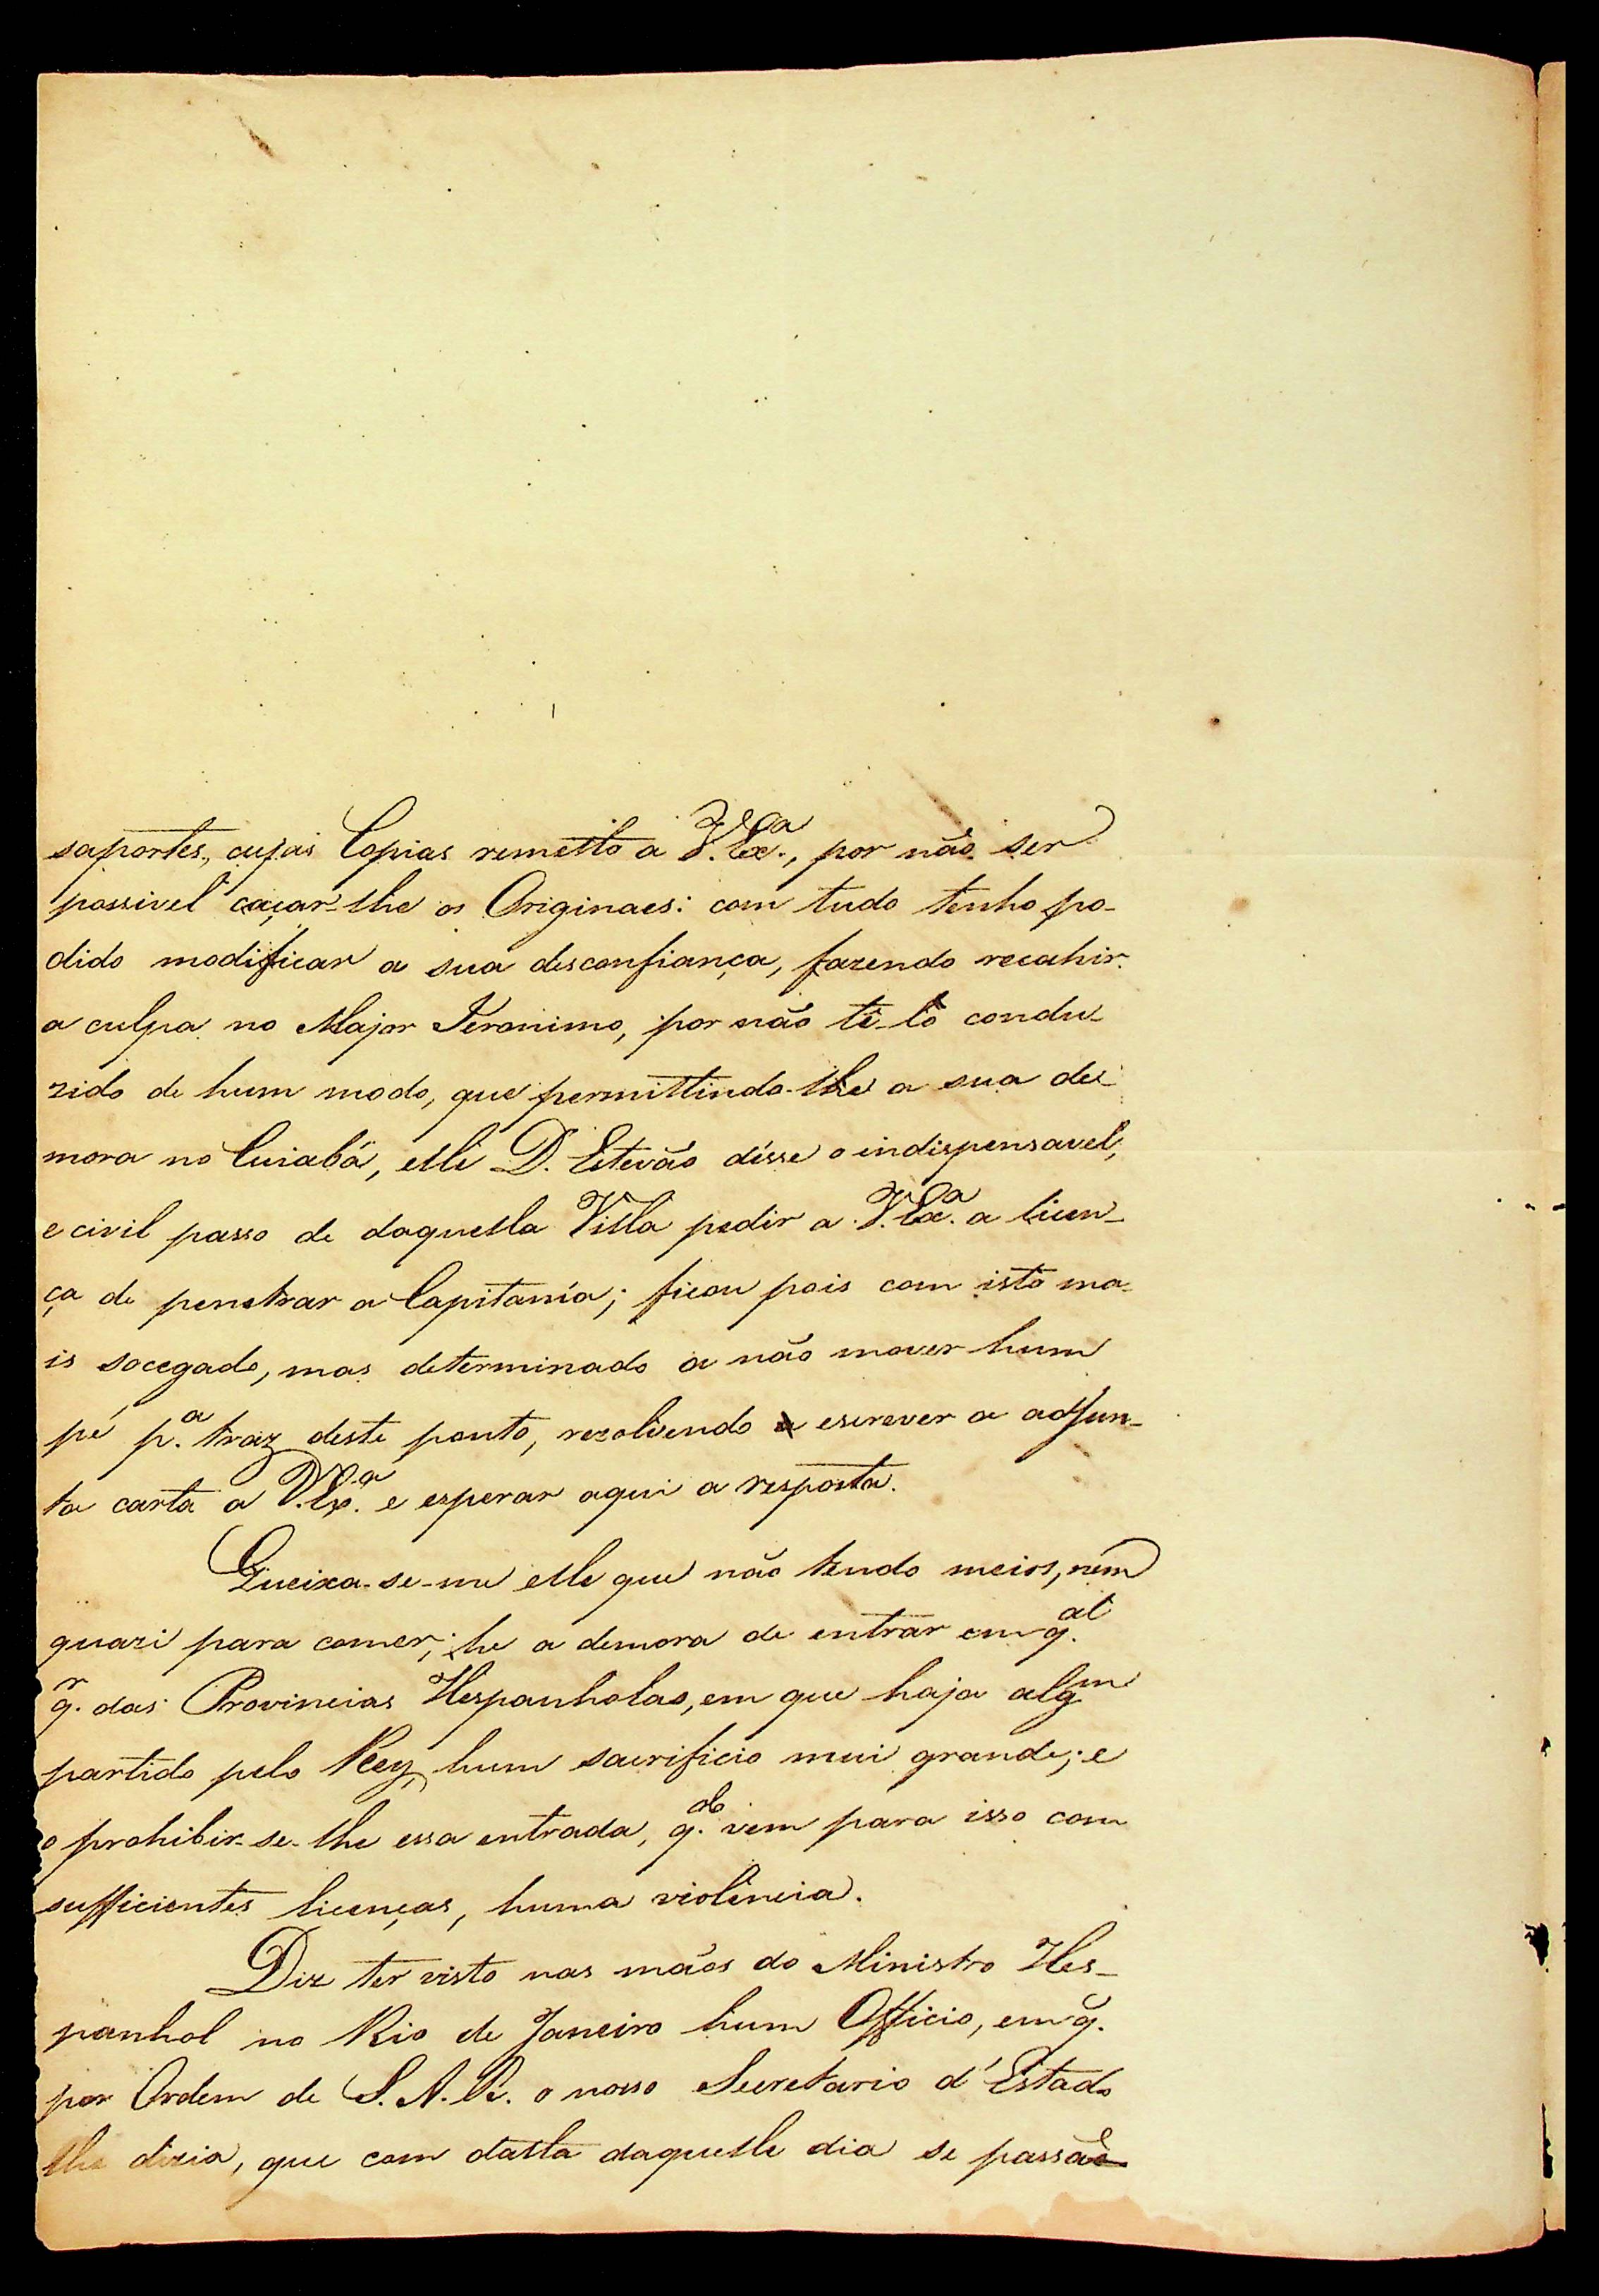 saportes, cujas Copias remetto a V. Ex.ª, por não ser
possivel caçar-lhe os Originaes: com tudo tenho po-
dido modificar a sua desconfiança, fazendo recahir
a culpa no Major Jeronimo, por não tê-lo condu-
zido de hum modo, que permittindo-lhe a sua de-
mora no Cuiabá, elle D. Estevão désse o indispensavel,
e civil passo de daquella Villa pedir a V. Ex.ª a licen-
ça de penetrar a Capitanía; ficou pois com isto ma-
is socegado, mas determinado a não mover hum
pé p.ª traz deste ponto, rezolvendo a escrever a adjun-
ta carta a V. Ex.ª e esperar aqui a resposta.
Queixa-se-me elle que não tendo meios, nem
quazi para comer; he a demora de entrar em q.al
q.r das Provincias Hespanholas, em que haja algm
partido pelo Rey, hum sacrificio mui grande; e
o prohibir-se-lhe essa entrada, q.do vem para isso com
sufficientes licenças, huma violência.
Diz ter visto nas mãos do Ministro Hes-
panhol no Rio de Janeiro hum Officio, em q̃.
por Ordem de S. A. R. o nosso Secretario d'Estado
lhe dizia, que com datta daquelle dia se passão